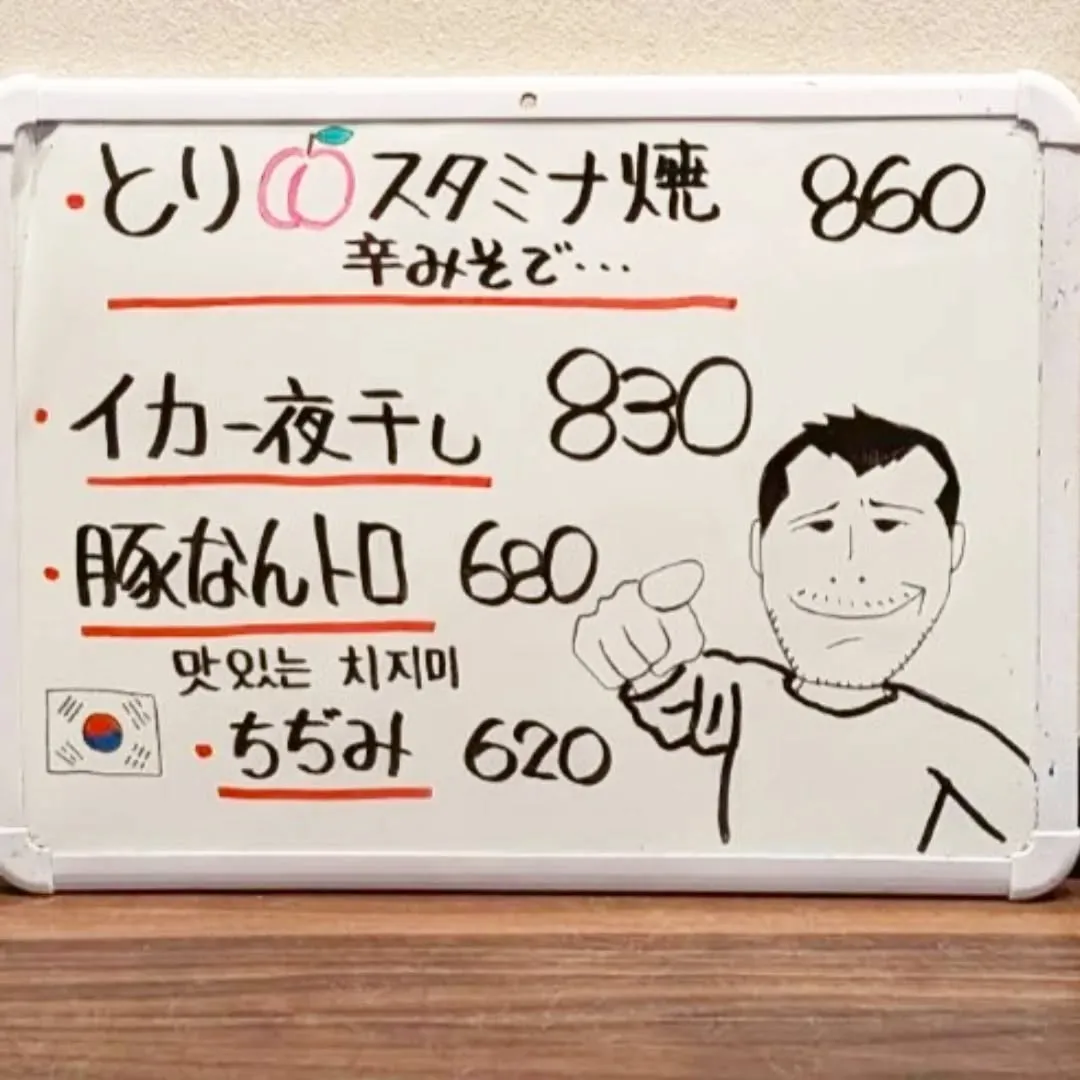 ・とり🍑スタミナ焼 860
辛みそで…
・イカ一夜干し 830
・豚なんトロ 680
맛있는 치지미
・ちぢみ 620